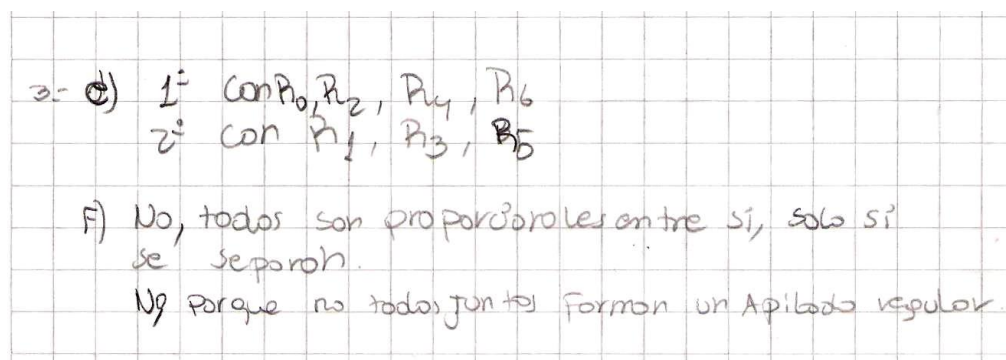 3.- e) 1º con R0, R2, R4, R6
2º con R1, R3, R5
F) No, todos son proporcionales entre sí, solo si
se separan.
No porque no todos juntos forman un Apilado regular